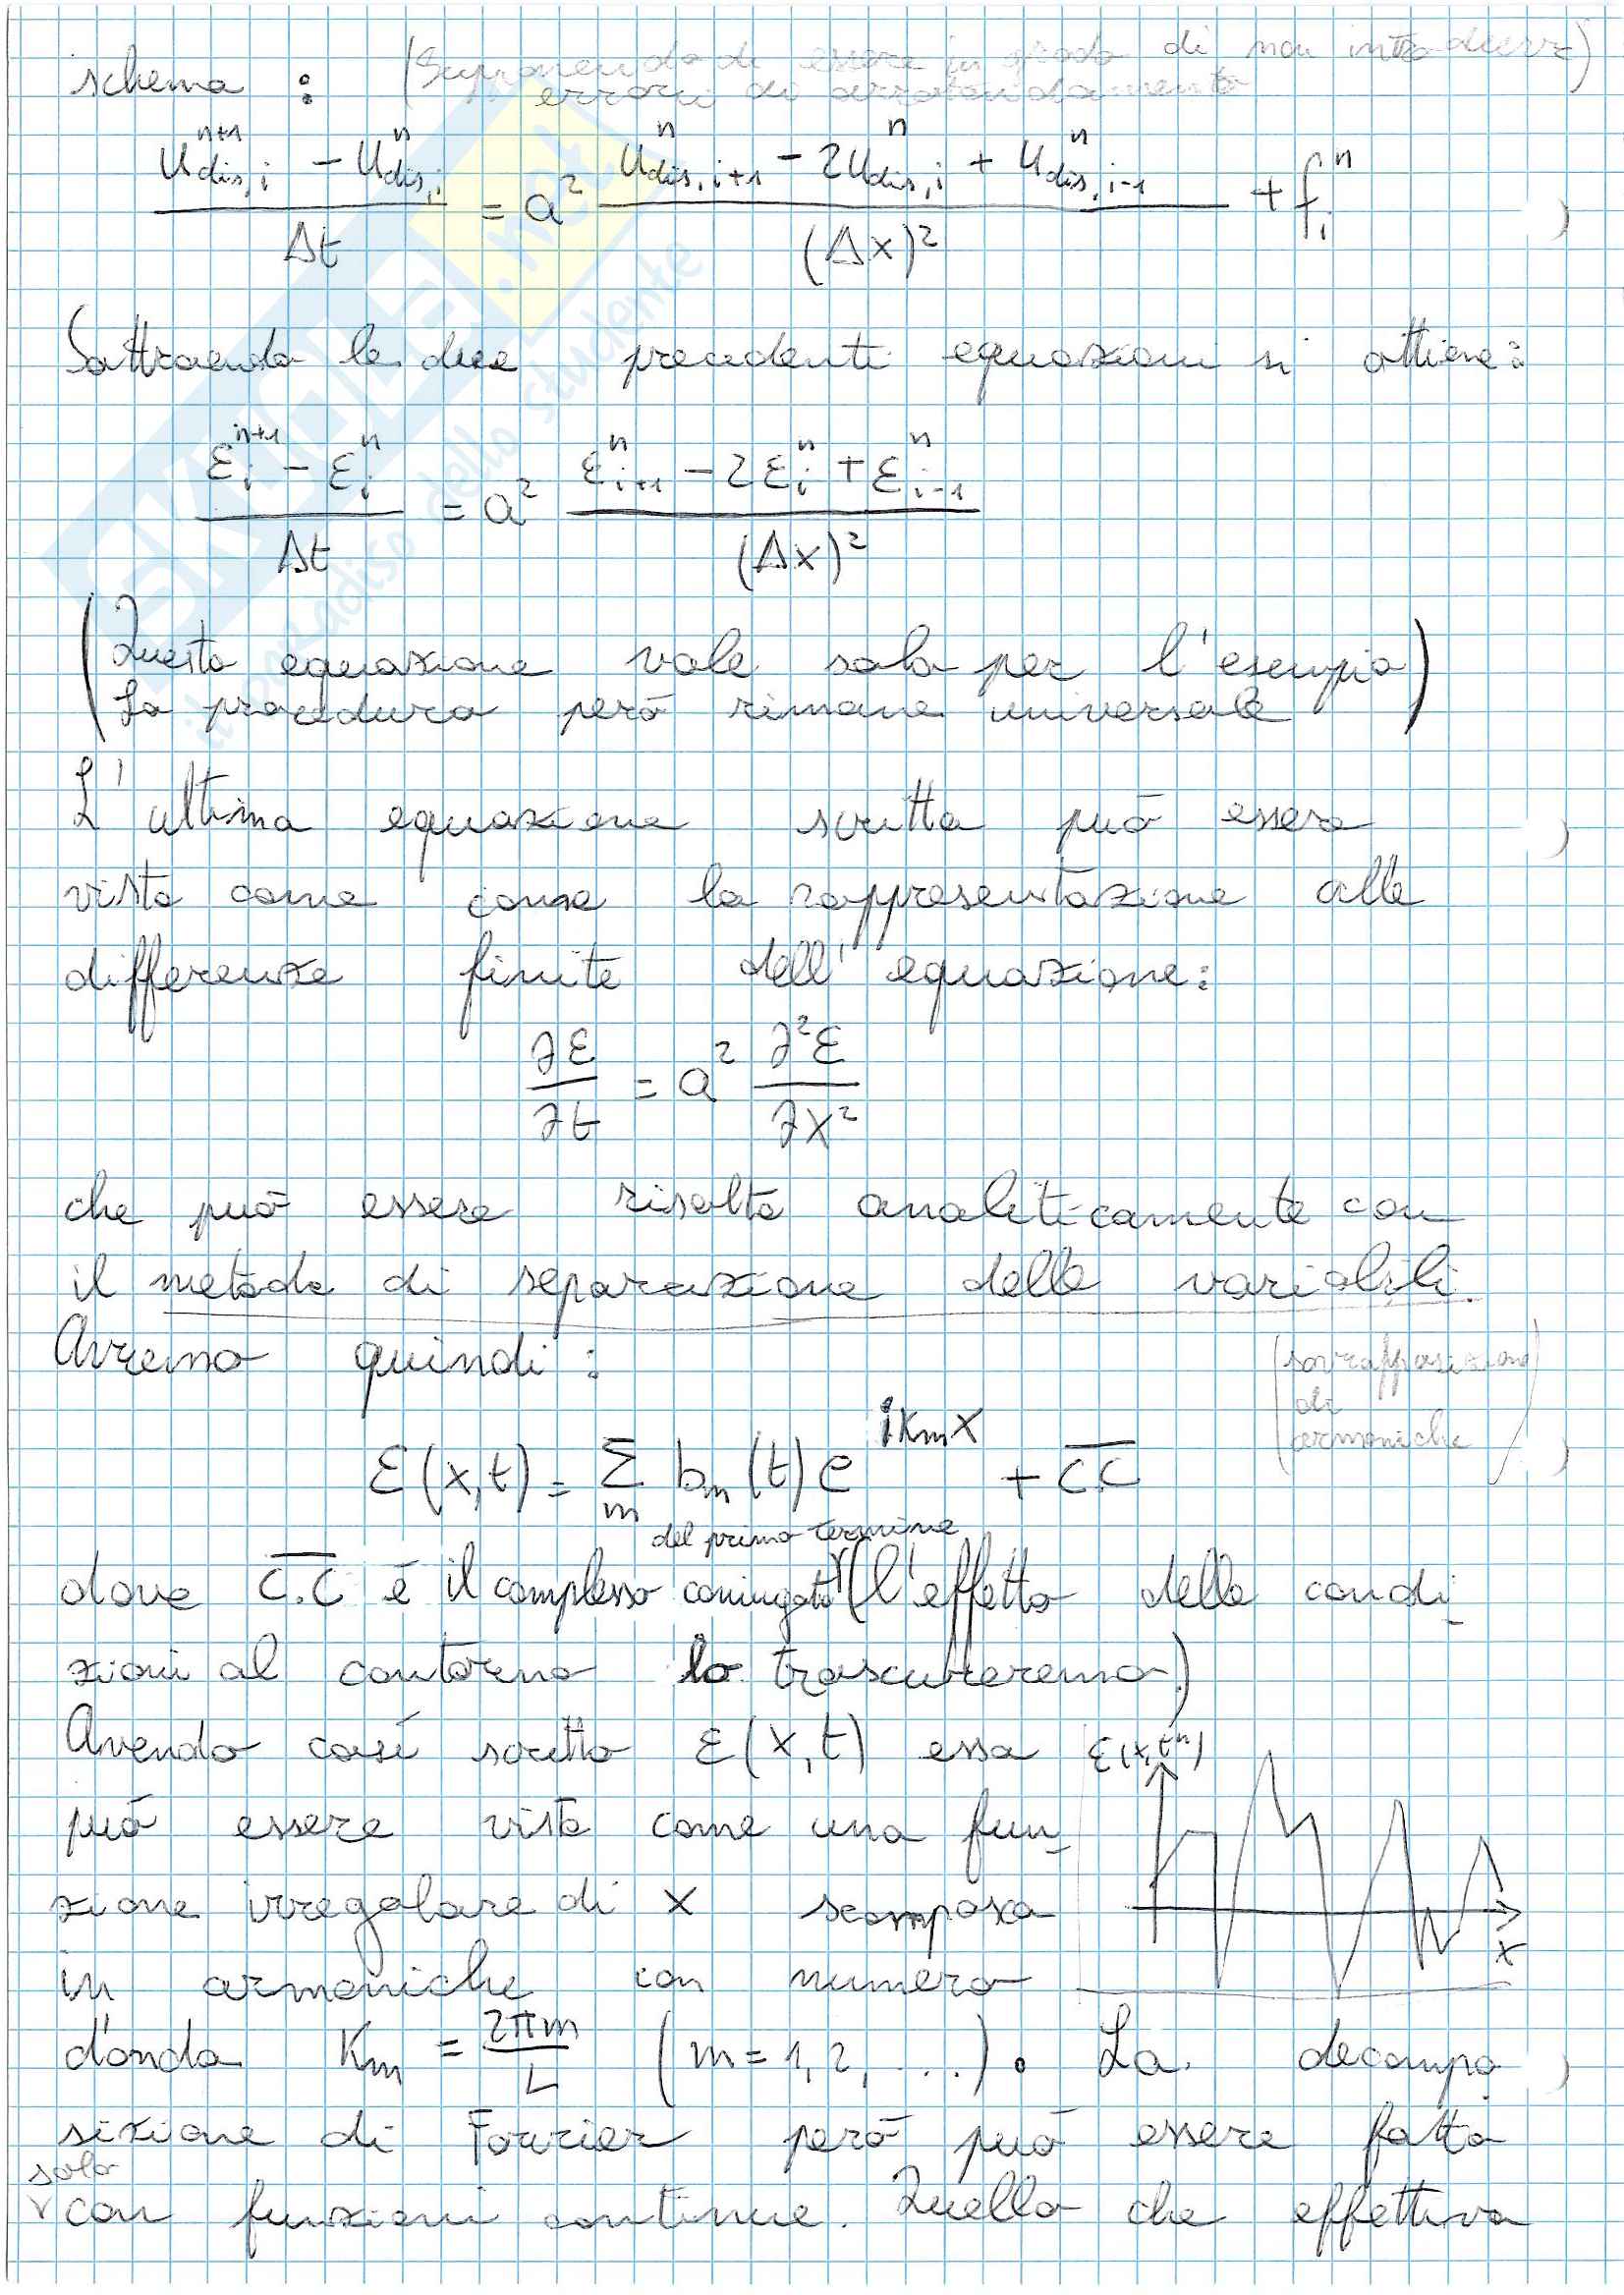 schema : (Supponendo di essere in grado di non introdurre
errori di arrotondamento)
(u_dis,i^n+1 − u_dis,i^n) / Δt = a² (u_dis,i+1^n − 2u_dis,i^n + u_dis,i−1^n) / (Δx)² + f_i^n
Sottraendo le due precedenti equazioni si ottiene:
(ε_i^n+1 − ε_i^n) / Δt = a² (ε_i+1^n − 2ε_i^n + ε_i−1^n) / (Δx)²
(Questa equazione vale solo per l'esempio
La procedura però rimane universale)
L'ultima equazione scritta può essere
vista come come la rappresentazione alle
differenze finite dell'equazione:
∂ε/∂t = a² ∂²ε/∂x²
che può essere risolta analiticamente con
il metodo di separazione delle variabili.
Avremo quindi:
(sovrapposizione
di
armoniche)
ε(x,t) = Σ_m b_m(t) e^ik_m x + C.C
del primo termine
dove C.C è il complesso coniugato (l'effetto delle condi-
zioni al contorno lo trascureremo.)
Avendo così scritto ε(x,t) essa
può essere vista come una fun-
zione irregolare di x scomposta
in armoniche con numero
d'onda k_m = 2πm/L (m=1,2, ...). La decompo
sizione di Fourier però può essere fatta
solo
con funzioni continue. Quello che effettiva
ε(x,t^n)
x
SKUOLA.net
il paradiso dello studente